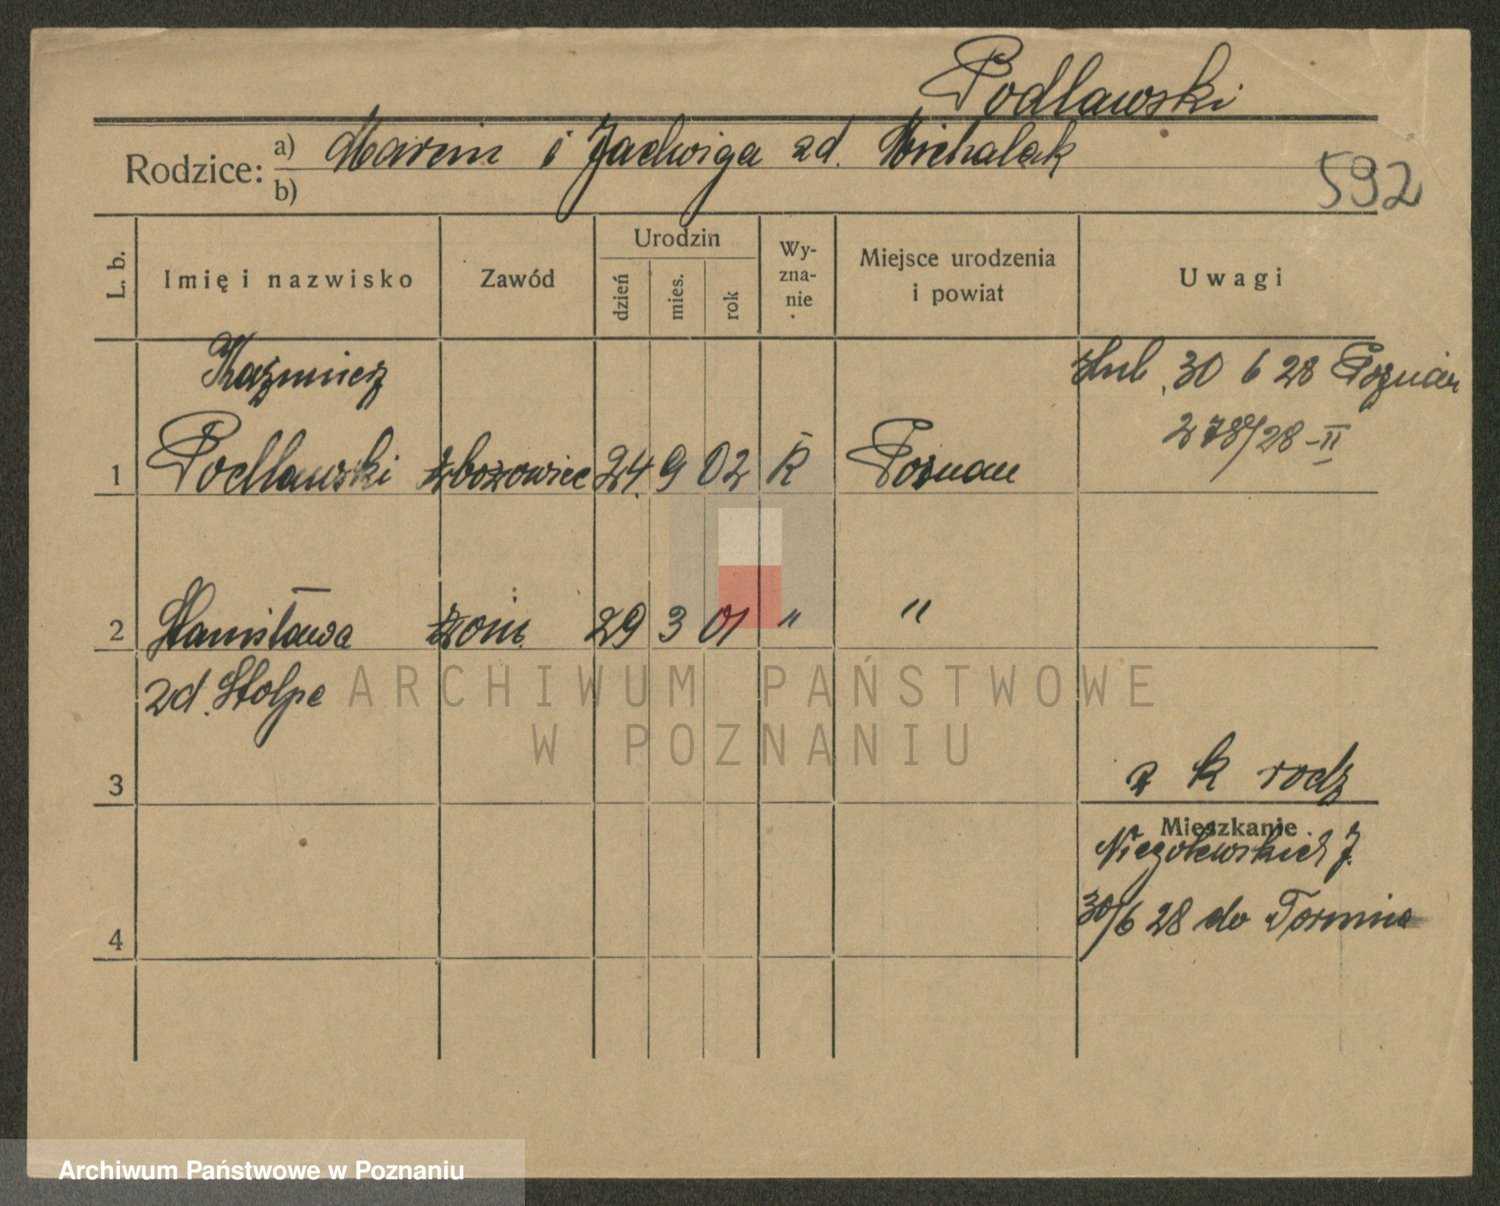 Podlawski
Rodzice: a) Marcin i Jadwiga zd. Michalak
b)
592
L. b.
Imię i nazwisko
Zawód
Urodzin
dzień
mies.
rok
Wy-
zna-
nie
Miejsce urodzenia
i powiat
Uwagi
Kazimierz
ślub 30 6 28 Poznań
278/28-II
1 Podlawski zbożowiec 24. 9 02 R Poznań
2 Stanisława żon. 29 3 01 " "
zd. Stolpe
ARCHIWUM PAŃSTWOWE
W POZNANIU
3
z k rodz
Mieszkanie
Niegolewskich 7.
30/6 28 do Tormia
4
Archiwum Państwowe w Poznaniu